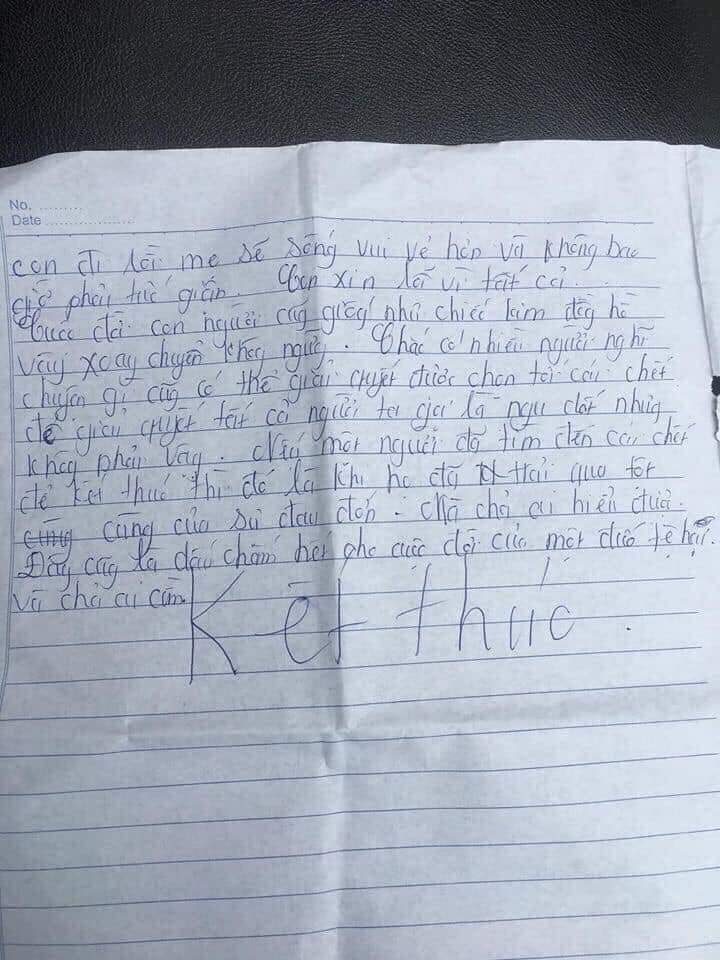 No. ..........
Date ....................
con đi rồi mẹ sẽ sống vui vẻ hơn và không bao
giờ phải tức giận. Con xin lỗi vì tất cả.
Cuộc đời con người cũg giốg như chiếc kim đồg hồ
vậy xoay chuyển khôg ngừg. Chắc có nhiều người nghĩ
chuyện gì cũg có thể giải quyết được chọn tới cái chết
để giải quyết tất cả người ta gọi là ngu dốt nhưg
khôg phải vậy. một người đã tìm đến cái chết
để kết thúc thì đó là khi họ đã trải qua tột
cùng của sự đau đớn. Mà chả ai hiểu được.
Đây cũg là dấu chấm hết cho cuộc đời của một đứa tệ hại
và chả ai cần.
Kết thúc.